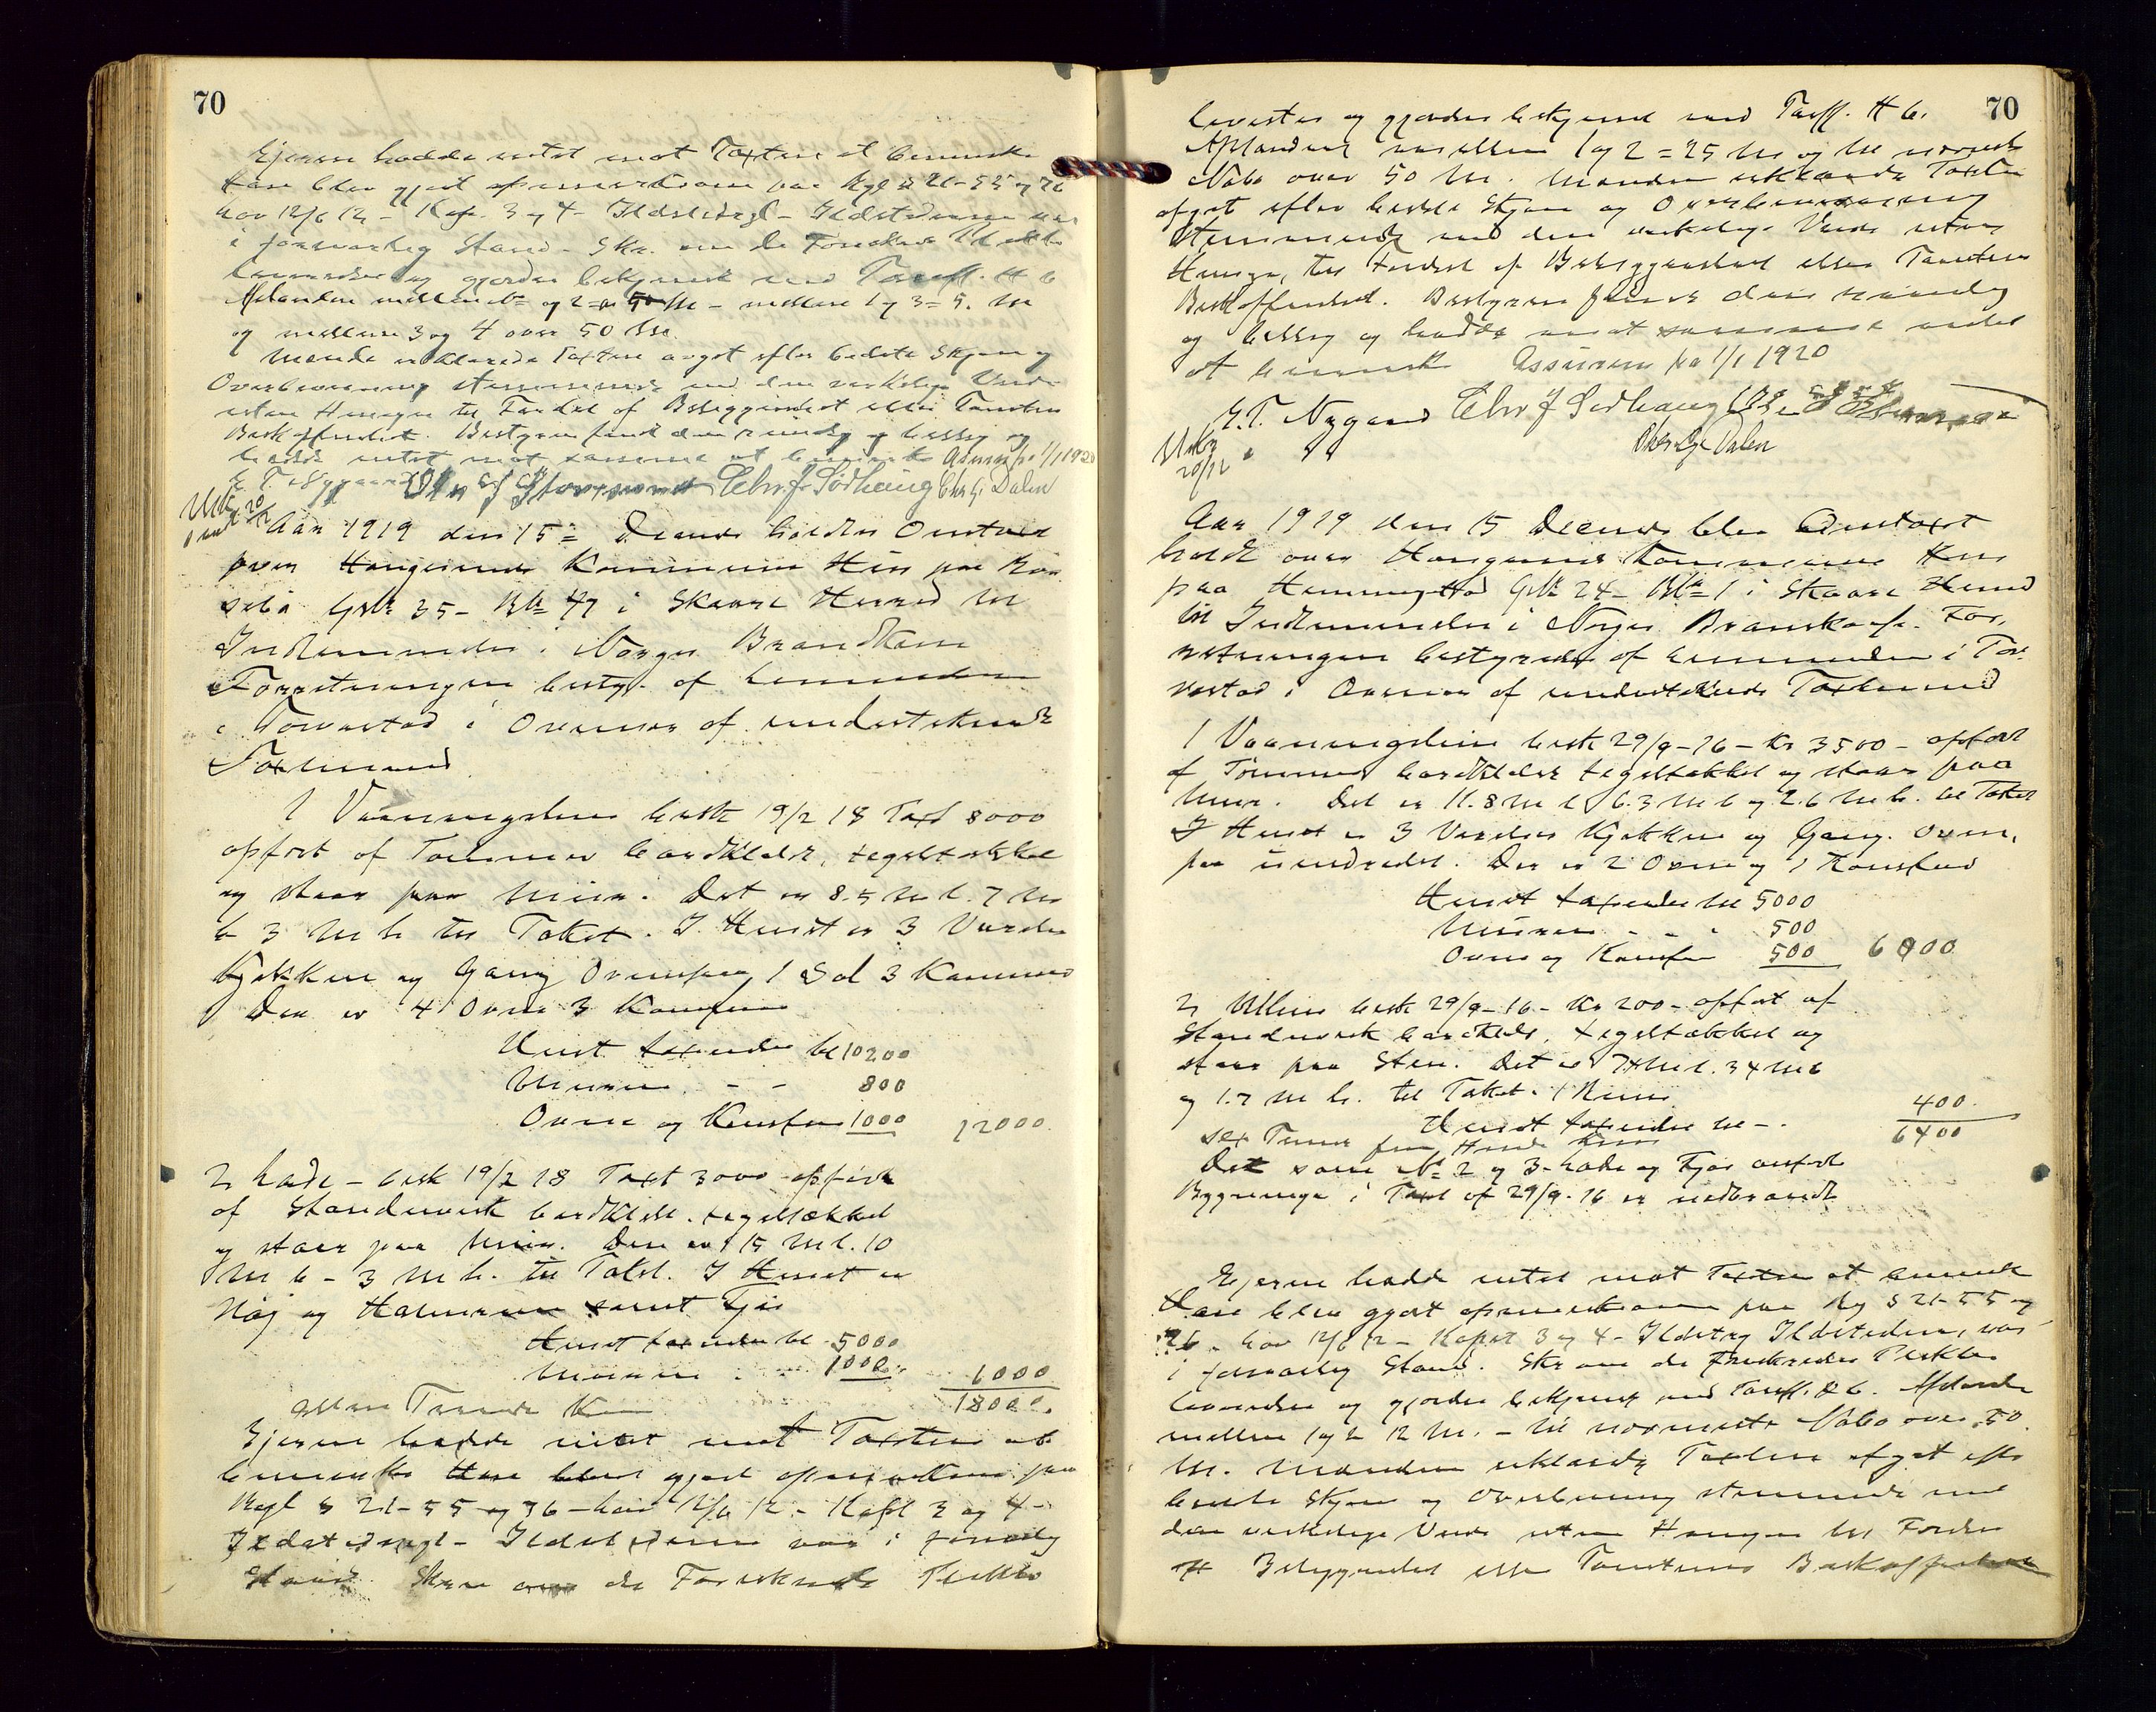 70
Ejeren hadde intet mot Taxten at bemerke
Han blev gjort opmerksom paa Rgl § 21-55 og 76
Lov 12/6 12 - Kap. 3 og 4 - Ildstedrgl - Ildstederne var
i forsvarlig Stand - Skr. om de Plikter
og gjordes bekjendt med Tariff. H b
Afstanden mellem 1 og 2 = 50 M - mellem 1 og 3 = 5. M
og mellem 3 og 4 over 50 M.
Mændene erklærede Taxten avgit efter bedste Skjøn og
Overbevisning stemmende med den virkelige Værdi
uten Hensyn til Fordel af Bebyggendet eller Tomtens
Beskaffenhet. Bestyreren fandt den rimelig og billig og
hadde intet mot samme at bemerke Assurers fra 1/1 1920
E. T. Nygaard Chr J Sørhaug Chr G Dalen
Utskr. 20/12
Aar 1919 den 15 Decembr holdtes Omtaxt
over Haugesunds Kommunes Hus paa
Gnr 35 - Bnr 47 i Skaare Herred til
Indlemmelse i Norges Brandkasse
Forretningen besty. af Lensmanden
i Torvastad i Overvær af undertegnede
Taxtmænd
1 Vaaningshus besk 19/2 18 Taxt 8000
opført af Tømmer bordklædt, tegltækket
og staar paa Mur. Det er 8.5 M l. 7 M
b 3 M h til Taket. I Huset er 3 Værelser
Kjøkken og Gang Ovenpaa 1 Sal 3 Kammer
Der er 4 Ovne 3 Komfurer
Huset taxeredes til 10200
Muren - - 800
Ovne og Komfur 1000 12000
2 Lade - besk 19/2 18 Taxt 3000 opført
af Standverk bordklædt. tegltækket
og staar paa Mur. Den er 15 M l. 10
M b - 3 M h. til Taket. I Huset er
Høj og Halmrum samt Fjøs
Huset taxeredes til 5000
Muren - 1000 6000
Atten Tusende Kr 18000
Ejeren hadde intet mot Taxten at
bemerke Han blev gjort opmerksom paa
Regl § 21-55 og 76 - Lov 12/6 12 - Kapt 3 og 4 -
Ildstedregl - Ildstederne var i forsvarlig
Stand. Skr. om de Foreskrevne Plikter
70
levertes og gjordes bekjendt med Tariff. H b.
Afstanden mellem 1 og 2 = 25 M og til nærmeste
Nabo over 50 M. Mændene erklærede Taxten
afgit efter bedste Skjøn og Overbevisning
stemmende med den virkelige Værdi uten
Hensyn til Fordel af Bebyggendet eller Tomtens
Beskaffenhet. Bestyreren fandt den rimelig
og billig og hadde mot samme intet
at bemerke Assurers fra 1/1 1920
E. T. Nygaard Chr J Sørhaug
Chr G Dalen
Utskr 20/12
Aar 1919 den 15 Decembr blev Omtaxt
holdt over Haugesunds Kommunes Hus
paa Gnr 24 - Bnr 1 i Skaare Herred
til Indlemmelse i Norges Brandkasse. For-
retningen bestyredes af Lensmanden i Tor-
vastad i Overvær af undertegnede Taxtmænd
1 Vaaningshus besk 29/9-16 - Kr 3500 - opført
af Tømmer bordklædt tegltækket og staar paa
Mur. Det er 11.8 M l 6.3 M b og 2.6 M h. til Taket
I Huset er 3 Værelser Kjøkken og Gang. Oven-
paa uindredet. Der er 2 Ovne og 1 Komfur
Huset taxeredes til 5000
Muren - - - 500
Ovne og Komfur 500 6000
2 besk 29/9-16 - Kr 200 - opført af
Standverk bordklædt, tegltækket og
staar paa Sten. Det er M l. 34 M b
og 1.7 M h. til Taket.
Huset taxeredes til - 400
Sex Tusen fire Hundre Kroner 6400
Det som No 2 og 3 - Lade og Fjøs anførte
Bygninger i Taxt af 29/9-16 er nedbrændt
Ejeren hadde intet mot Taxten at bemerke
Han blev gjort opmerksom paa Rg § 21-55 og
76 - Lov 12/6 12 - Kapt 3 og 4 - Ildstederne var
i forsvarlig Stand. Skr om de foreskrevne Plikter
leveredes og gjordes bekjendt med Tariff. H b. Afstanden
mellem 1 og 2 12 M. - til nærmeste Nabo over 50
M. Mændene erklærede Taxten afgit efter
bedste Skjøn og Overbevisning stemmende med
den virkelige Værdi uten Hensyn til Fordel
af Bebyggendet eller Tomtens Beskaffenhet